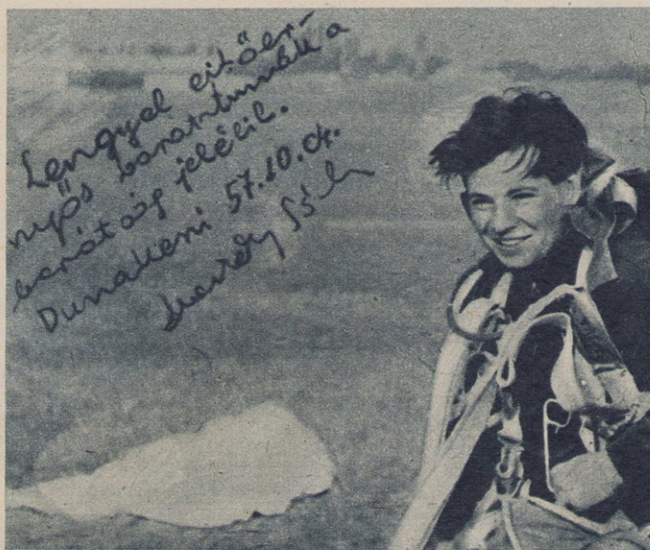 Lengyel ejtőer-
nyős barátunknak a
barátság jeléül.
Dunakeszi 57.10.04.